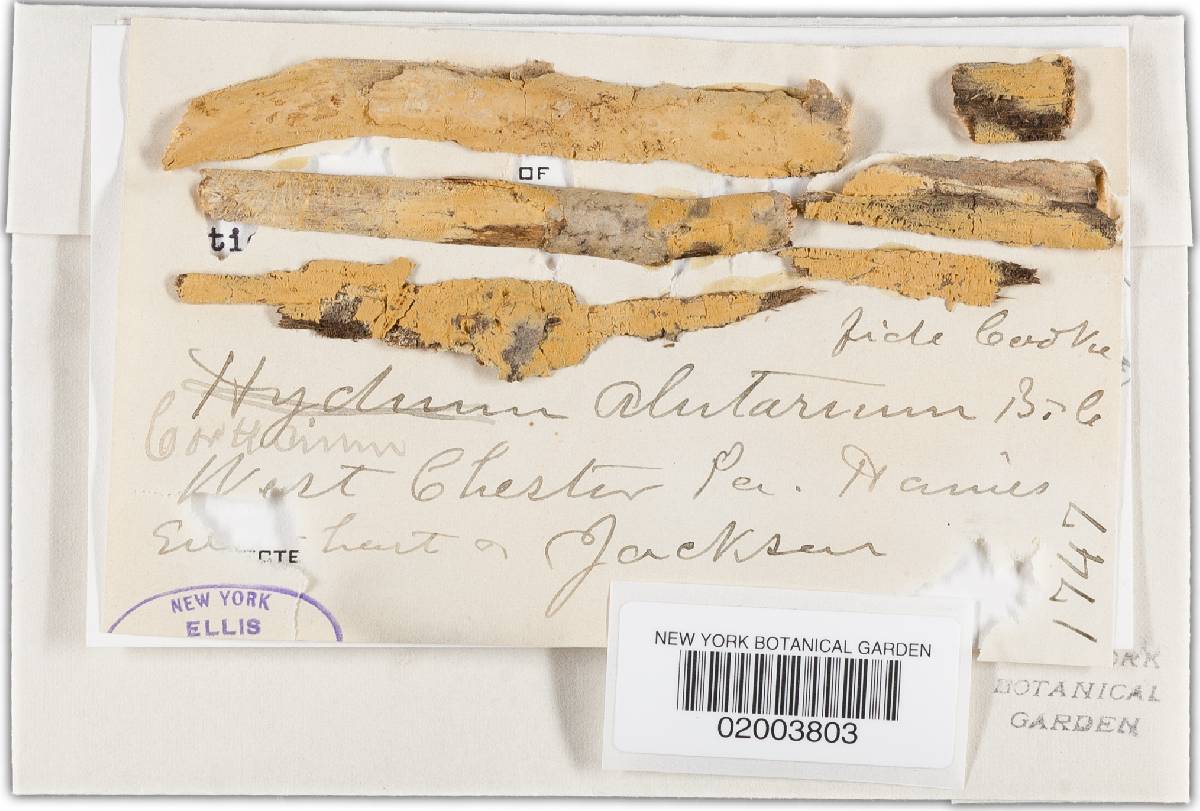 OF
ti
fide Cooke
Hydnum alutarium B&C
Corticium
West Chester Pa. Haines
hart & Jackson
CTE
1747
NEW YORK
ELLIS
NEW YORK BOTANICAL GARDEN
02003803
RK
BOTANICAL
GARDEN